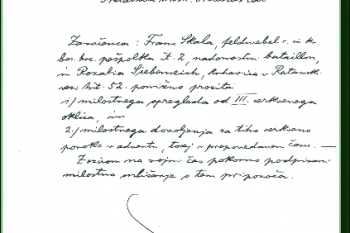 Zaročenca: Franc Skala, feldwebel c. in k.
bos. herc. pešpolka št. 2, nadomestni bataillon,
in Rozalia Siebenreich, kuharica v
hiš. št. 52. ponižno prosita
1./ milostnega spregleda od III. cerkvenega
oklica, in
2./ milostnega dovoljenja za tiho cerkveno
poroko v adventu, torej v prepovedanem času. —
Z ozirom na vojni čas pokorno podpisani
milostno uslišanje o tem priporoča.